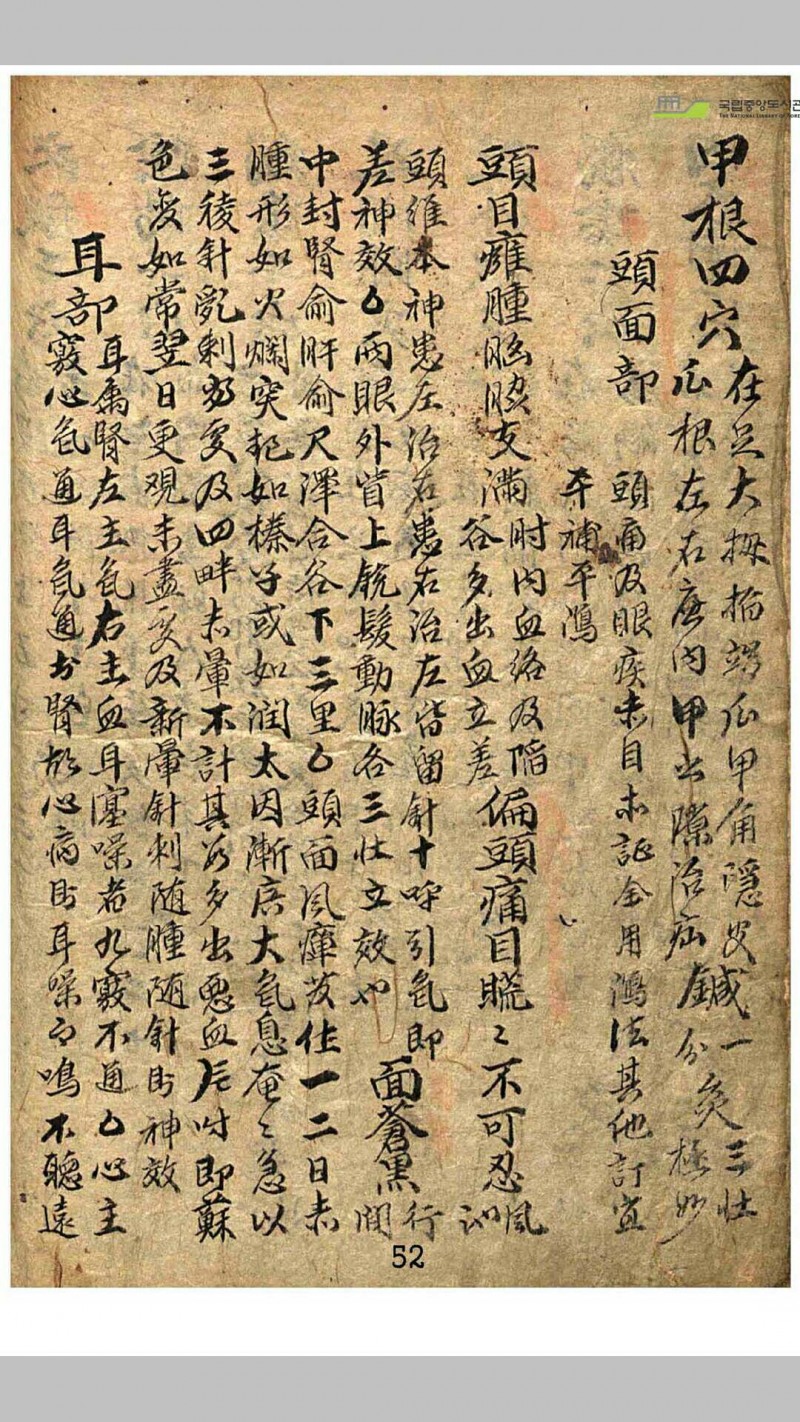 국립중앙도서관
THE NATIONAL LIBRARY OF KOREA
甲根四穴
在足大拇指端爪甲角隱皮
爪根左右廉內甲之隙治疝
鍼一分灸三壯極妙
頭面部
頭痛及眼疾赤目赤證全用瀉法其他訂宜
平補平瀉
頭目癰腫胸脇支滿
肘內血絡及陷
谷多出血立差
偏頭痛目䀮〻不可忍
風
頭維本神患左治右患右治左皆留針十呼引氣即
差神效
兩眼外眥上銳髮動脉各三壯立效也
面蒼黑
行間
中封腎俞肝俞尺澤合谷下三里
頭面風痺發作一二日赤
腫形如火爛突起如榛子或如潤太因漸廣大氣息奄〻急以
三稜針亂刺當處及四畔赤暈不計其數多出惡血即蘇
色變如常翌日更觀未盡處及新暈針刺隨腫隨針則神效
耳部
耳屬腎左主氣右主血耳塞噪者九竅不通
心主
竅心氣通耳氣通於腎故心病則耳噪而鳴不聽遠
52